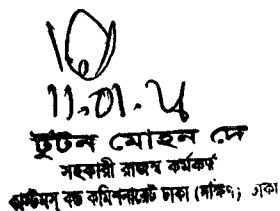 11.01.
টুটন মোহন দে
সহকারী রাজস্ব কর্মকর্তা
কাস্টমস্ বন্ড কমিশনারেট ঢাকা (দক্ষিণ) ঢাকা